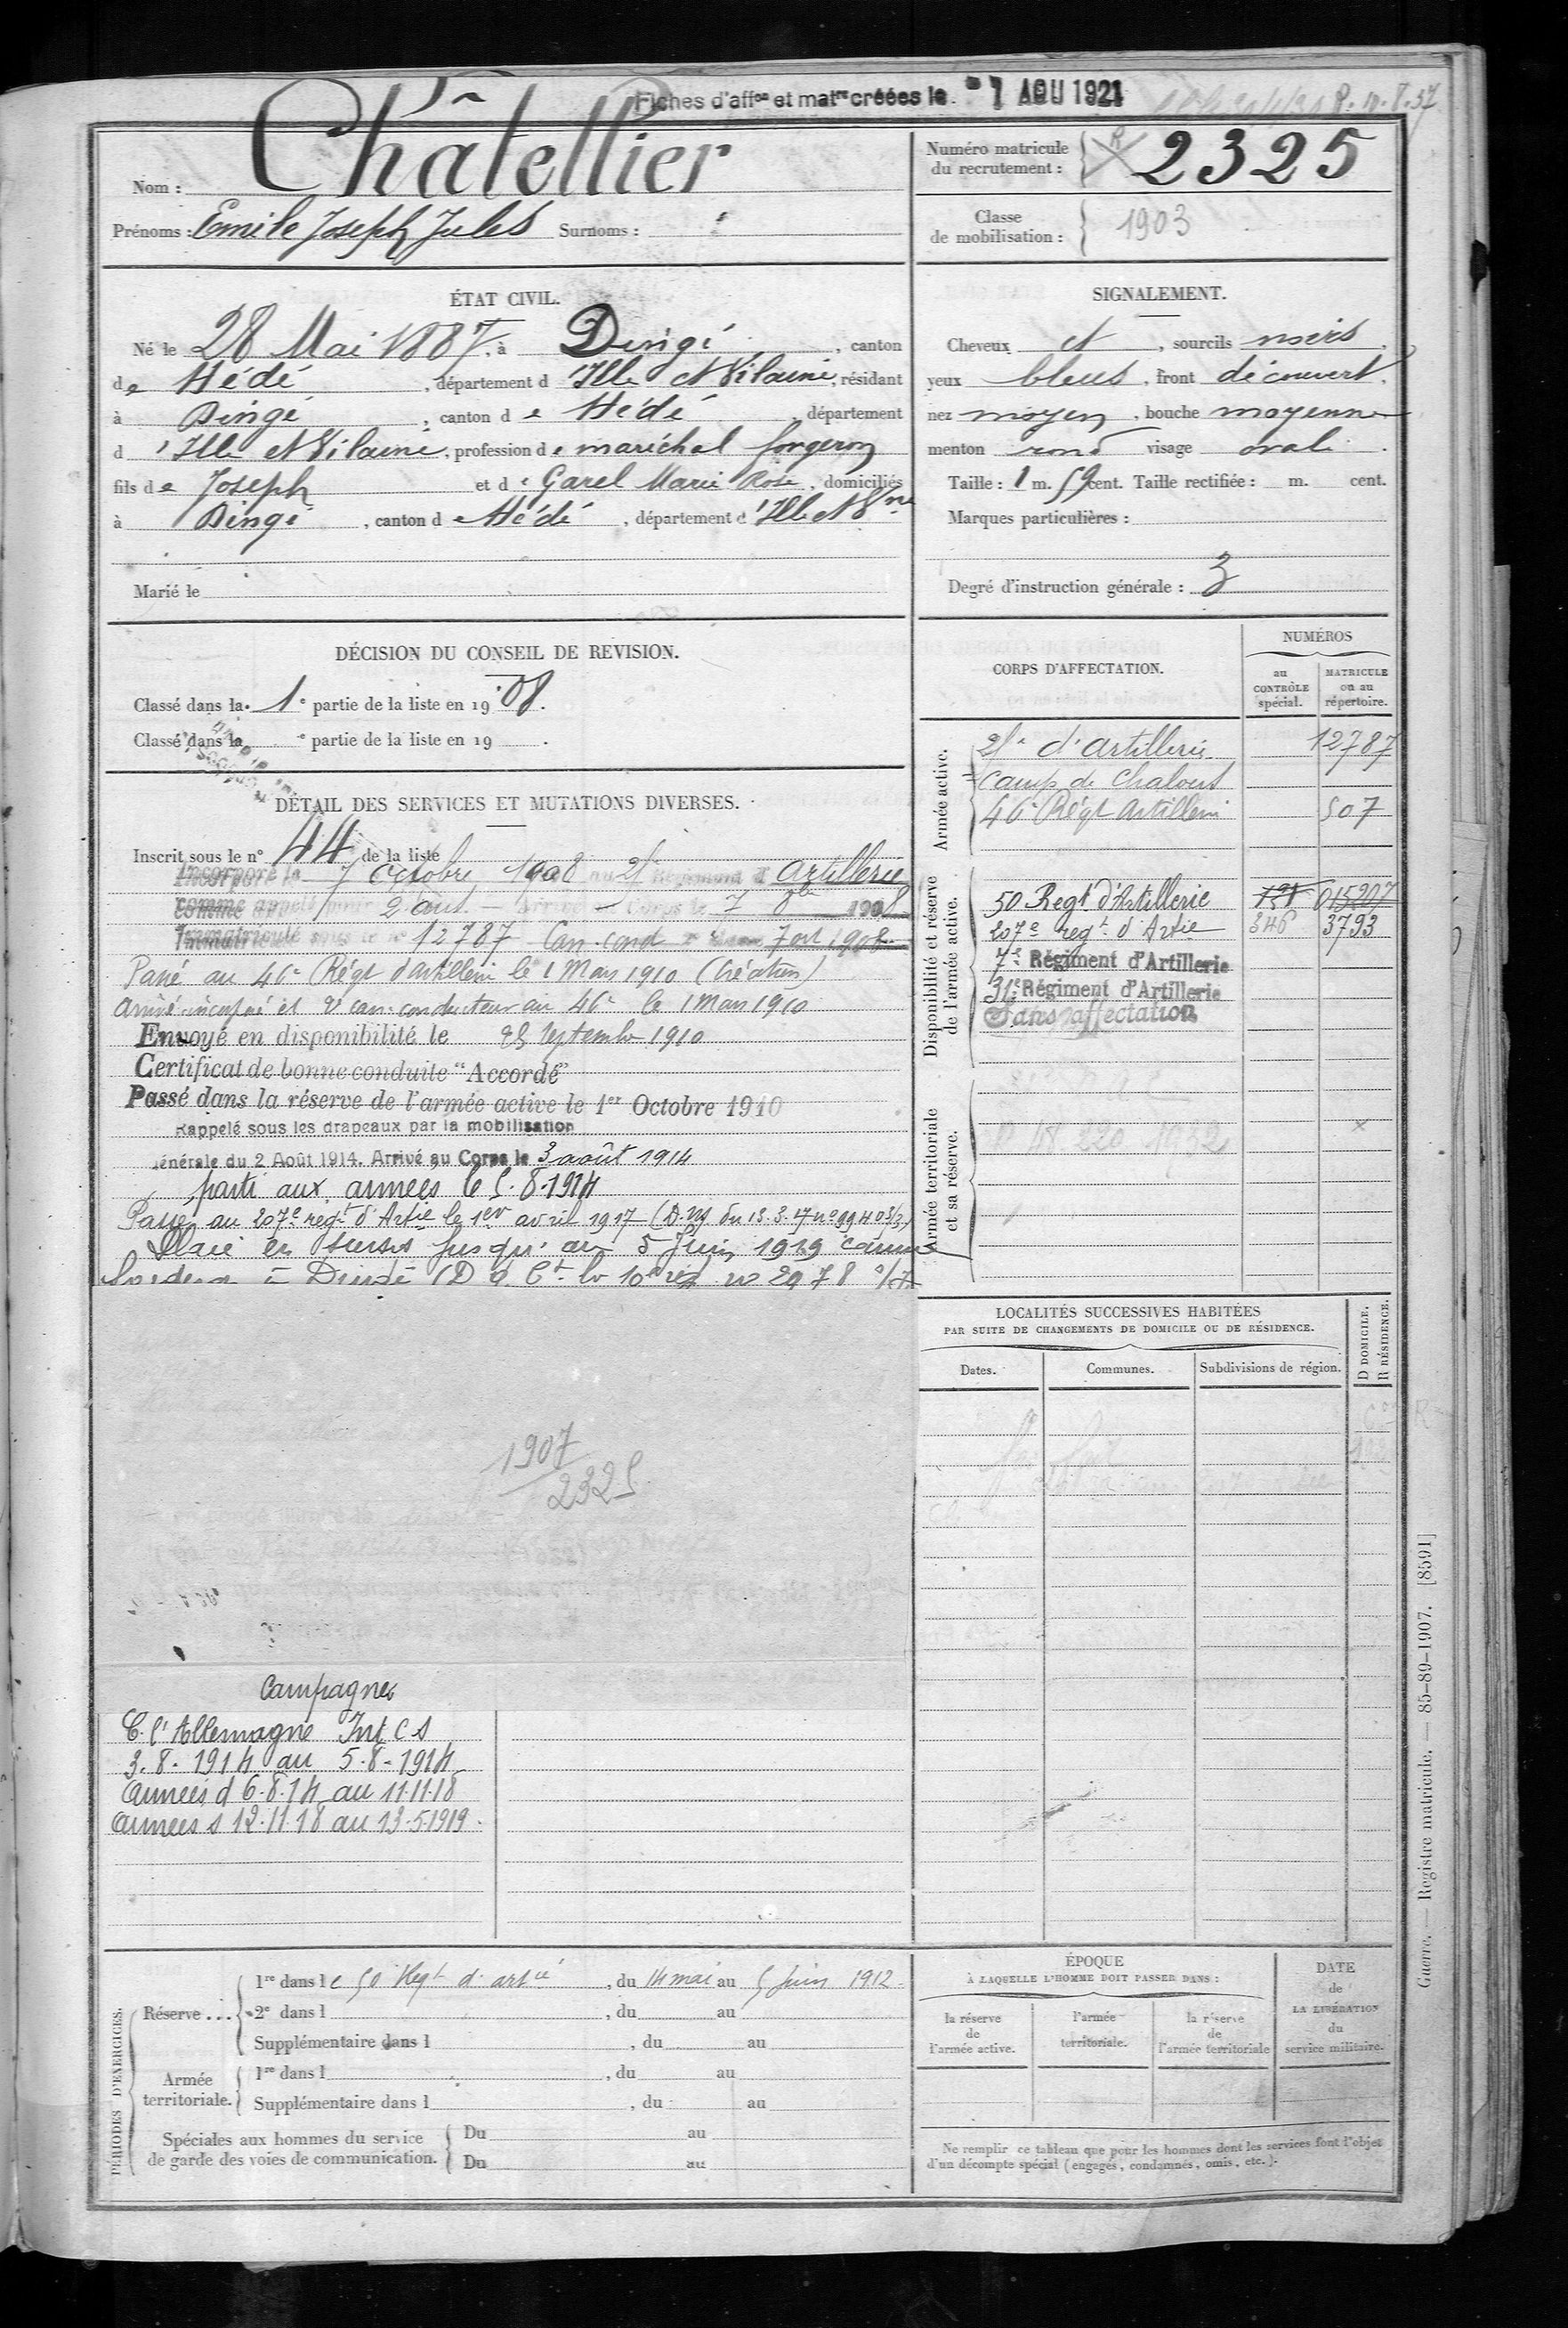 Fiches d'affon et matre créées le 1 AOU 1921
Nom : Châtellier
Prénoms : Emile Joseph Jules Surnoms :
Numéro matricule du recrutement : 2325
Classe de mobilisation : 1903
ÉTAT CIVIL.
Né le 28 Mai 1887, à Dingé, canton
de Hédé, département d'Ille et Vilaine, résidant
à Dingé, canton de Hédé, département
d'Ille et Vilaine, profession de maréchal forgeron
fils de Joseph et de Garel Marie Rose, domiciliés
à Dingé, canton de Hédé, département d'Ille et Vne
Marié le
SIGNALEMENT.
Cheveux et, sourcils noirs
yeux bleus, front découvert.
nez moyen, bouche moyenne
menton rond visage ovale.
Taille : 1 m. 59 cent. Taille rectifiée : m. cent.
Marques particulières :
Degré d'instruction générale : 3
DÉCISION DU CONSEIL DE REVISION.
Classé dans la 1e partie de la liste en 1908.
Classé dans la e partie de la liste en 19 .
DÉTAIL DES SERVICES ET MUTATIONS DIVERSES.
Inscrit sous le n° 44 de la liste
Incorporé le 7 Octobre 1908 au Régiment d'Artillerie
comme appelé pour 2 ans. Arrivé au Corps le 7 8bre 1908
Immatriculé sous le no 12787 Can. cond. 7 oct 1908
Passé au 46e Régt d'Artillerie le 1 Mars 1910 (Création)
Arrivé incorporé et 2e can. conducteur au 46e le 1 Mars 1910
Envoyé en disponibilité le 25 Septembre 1910
Certificat de bonne conduite "Accordé"
Passé dans la réserve de l'armée active le 1er Octobre 1910
Rappelé sous les drapeaux par la mobilisation
générale du 2 Août 1914. Arrivé au Corps le 3 août 1914
parti aux armées le 5.8.1914
Passé au 207e regt d'Artie le 1er avril 1917 (D.M du 13.3.17 no
Placé en sursis jusqu'au 5 Juin 1919 comme
à Dingé
1907
2325
CORPS D'AFFECTATION.
NUMÉROS
au CONTRÔLE spécial.
MATRICULE ou au répertoire.
Armée active.
d'Artillerie 12787
Camp de Chalons
46e Régt Artillerie 507
Disponibilité et réserve de l'armée active.
50 Regt d'Artillerie 015207
207e regt d'Artie 346 3793
7e Régiment d'Artillerie
31e Régiment d'Artillerie
Sans affectation
Armée territoriale et sa réserve.
LOCALITÉS SUCCESSIVES HABITÉES
PAR SUITE DE CHANGEMENTS DE DOMICILE OU DE RÉSIDENCE.
Dates. Communes. Subdivisions de région. D DOMICILE. R RÉSIDENCE.
Campagnes
C. l'Allemagne Int CS
3.8.1914 au 5.8.1914
Armées d 6.8.14 au 11.11.18
Armées s 12.11.18 au 13.5.1919.
PÉRIODES D'EXERCICES.
Réserve... 1re dans le 50 Regt d'artie, du 14 mai au 5 juin 1912
2e dans l , du au
Supplémentaire dans l , du au
Armée territoriale. 1re dans l , du au
Supplémentaire dans l , du au
Spéciales aux hommes du service de garde des voies de communication. Du au
Du au
ÉPOQUE
À LAQUELLE L'HOMME DOIT PASSER DANS :
la réserve de l'armée active.
l'armée territoriale.
la réserve de l'armée territoriale
DATE de LA LIBÉRATION du service militaire.
Ne remplir ce tableau que pour les hommes dont les services font l'objet
d'un décompte spécial (engagés, condamnés, omis, etc.).
Guerre. — Registre matricule. — 85-89-1907. [8591]